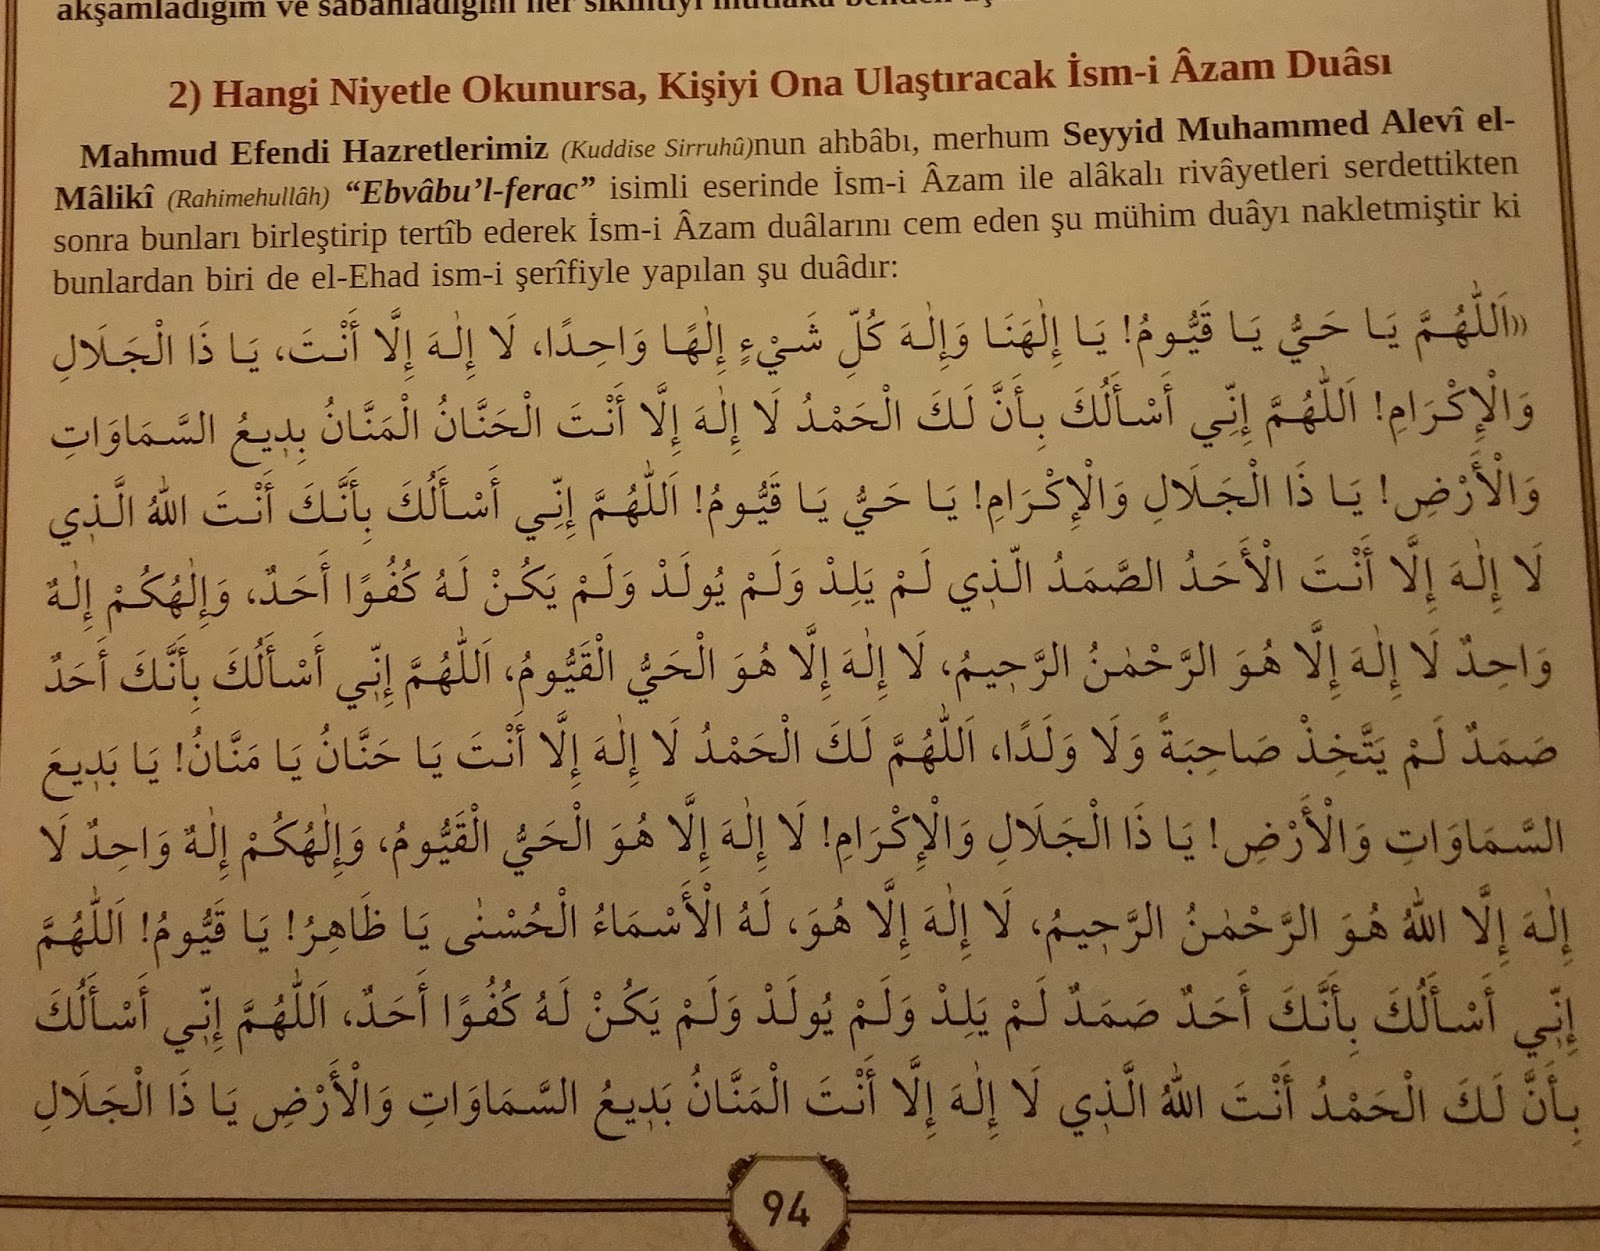 akşamladığım ve sabahladığım her sıkıntıyı mutlaka benden
2) Hangi Niyetle Okunursa, Kişiyi Ona Ulaştıracak İsm-i Âzam Duâsı
Mahmud Efendi Hazretlerimiz (Kuddise Sirruhû)nun ahbâbı, merhum Seyyid Muhammed Alevî el-
Mâlikî (Rahimehullâh) “Ebvâbu’l-ferac” isimli eserinde İsm-i Âzam ile alâkalı rivâyetleri serdettikten
sonra bunları birleştirip tertîb ederek İsm-i Âzam duâlarını cem eden şu mühim duâyı nakletmiştir ki
bunlardan biri de el-Ehad ism-i şerîfiyle yapılan şu duâdır:
«اَللّٰهُمَّ يَا حَيُّ يَا قَيُّومُ! يَا إِلٰهَنَا وَإِلٰهَ كُلِّ شَيْءٍ إِلٰهًا وَاحِدًا، لَا إِلٰهَ إِلَّا أَنْتَ، يَا ذَا الْجَلَالِ
وَالْإِكْرَامِ! اَللّٰهُمَّ إِنِّي أَسْأَلُكَ بِأَنَّ لَكَ الْحَمْدُ لَا إِلٰهَ إِلَّا أَنْتَ الْحَنَّانُ الْمَنَّانُ بِدِيعُ السَّمَاوَاتِ
وَالْأَرْضِ! يَا ذَا الْجَلَالِ وَالْإِكْرَامِ! يَا حَيُّ يَا قَيُّومُ! اَللّٰهُمَّ إِنِّي أَسْأَلُكَ بِأَنَّكَ أَنْتَ اللّٰهُ الَّذِي
لَا إِلٰهَ إِلَّا أَنْتَ الْأَحَدُ الصَّمَدُ الَّذِي لَمْ يَلِدْ وَلَمْ يُولَدْ وَلَمْ يَكُنْ لَهُ كُفُوًا أَحَدٌ، وَإِلٰهُكُمْ إِلٰهٌ
وَاحِدٌ لَا إِلٰهَ إِلَّا هُوَ الرَّحْمٰنُ الرَّحِيمُ، لَا إِلٰهَ إِلَّا هُوَ الْحَيُّ الْقَيُّومُ، اَللّٰهُمَّ إِنِّي أَسْأَلُكَ بِأَنَّكَ أَحَدٌ
صَمَدٌ لَمْ يَتَّخِذْ صَاحِبَةً وَلَا وَلَدًا، اَللّٰهُمَّ لَكَ الْحَمْدُ لَا إِلٰهَ إِلَّا أَنْتَ يَا حَنَّانُ يَا مَنَّانُ! يَا بَدِيعَ
السَّمَاوَاتِ وَالْأَرْضِ! يَا ذَا الْجَلَالِ وَالْإِكْرَامِ! لَا إِلٰهَ إِلَّا هُوَ الْحَيُّ الْقَيُّومُ، وَإِلٰهُكُمْ إِلٰهٌ وَاحِدٌ لَا
إِلٰهَ إِلَّا اللّٰهُ هُوَ الرَّحْمٰنُ الرَّحِيمُ، لَا إِلٰهَ إِلَّا هُوَ، لَهُ الْأَسْمَاءُ الْحُسْنٰى يَا ظَاهِرُ! يَا قَيُّومُ! اَللّٰهُمَّ
إِنِّي أَسْأَلُكَ بِأَنَّكَ أَحَدٌ صَمَدٌ لَمْ يَلِدْ وَلَمْ يُولَدْ وَلَمْ يَكُنْ لَهُ كُفُوًا أَحَدٌ، اَللّٰهُمَّ إِنِّي أَسْأَلُكَ
بِأَنَّ لَكَ الْحَمْدُ أَنْتَ اللّٰهُ الَّذِي لَا إِلٰهَ إِلَّا أَنْتَ الْمَنَّانُ بَدِيعُ السَّمَاوَاتِ وَالْأَرْضِ يَا ذَا الْجَلَالِ
94